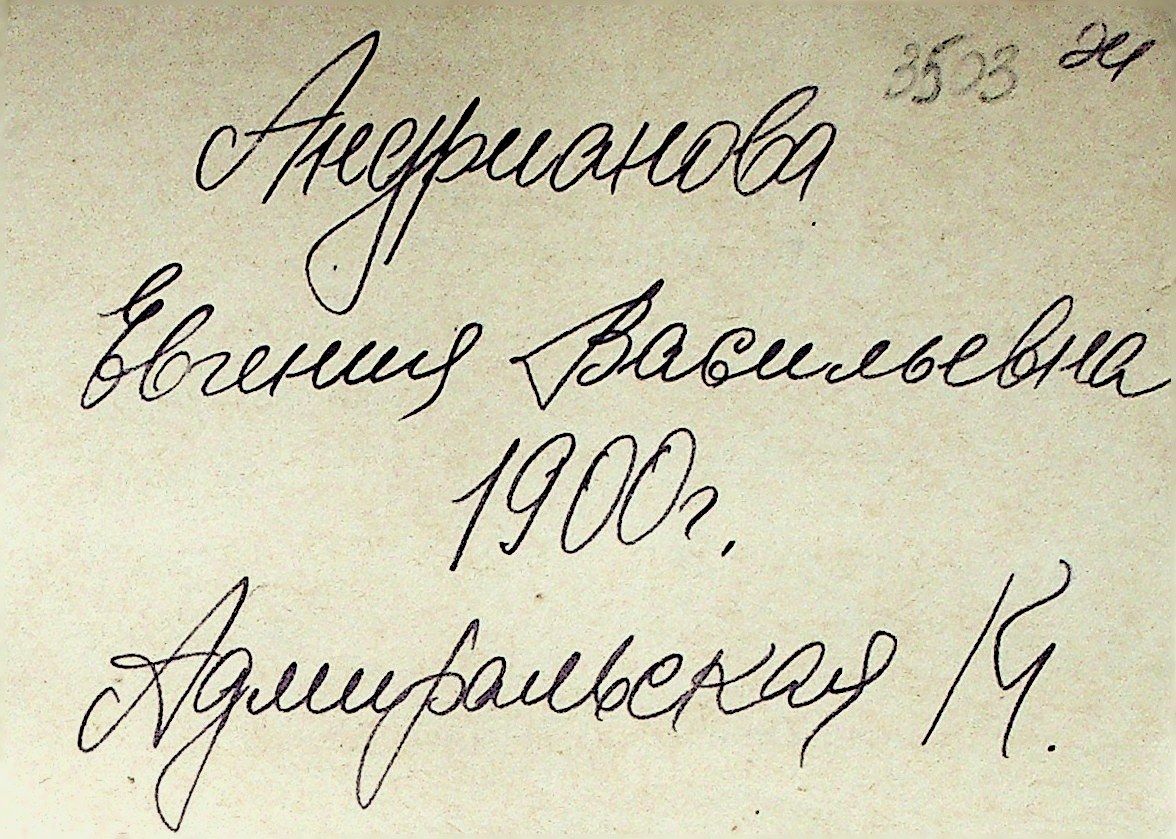 3503
Андрианова
Евгения Васильевна
1900г.
Адмиральская К.